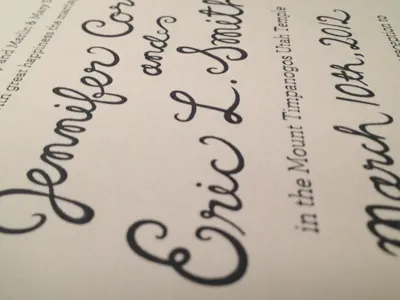 and Marlin & Mary S
with great happiness the marria
Jennifer Cor
and
Eric L. Smith
in the Mount Timpanogos Utah Temple
March 10th, 2012